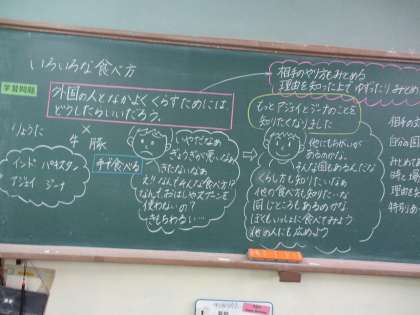 いろいろな食べ方
学習問題
外国の人となかよくくらすためには、
どうしたらいいだろう。
相手のやり方をみとめる
理由を知った上で ゆずったり みとめ
もっとアジェイとジーナのことを
知りたくなりました
りょうに
×
牛 豚
インド パキスタン
アジェイ ジーナ
手で食べる
いやだなあ
ぎょうぎが悪いなあ
きたないなあ
え!!なんでみんな食べ方!?
なんでおはしやスプーンを
使わないの?
きもちわるい…
他にもちがいが
あるのかな。
そんな国もあるんだな
くらし方も知りたいなぁ
他の食べ方も知りたいな
同じところもあるのかな。
ぼくもいっしょに食べてみよう
他の人にも広めよう
相手の文
自分の国
みとめ
時と場
理由を
特別あ